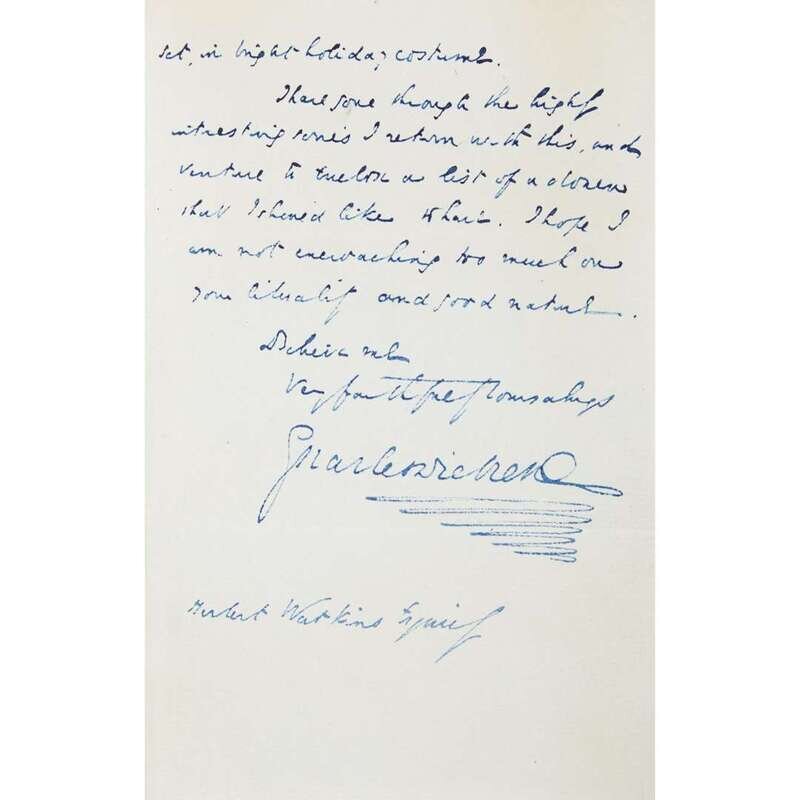 set, in bright holiday costume.
I have gone through the highly
interesting series I return with this, and
venture to enclose a list of a dozen
that I should like to have. I hope I
am not encroaching too much on
your liberality and good nature.
Believe me
Very faithfully Yours always
Charles Dickens
Herbert Watkins Esquire